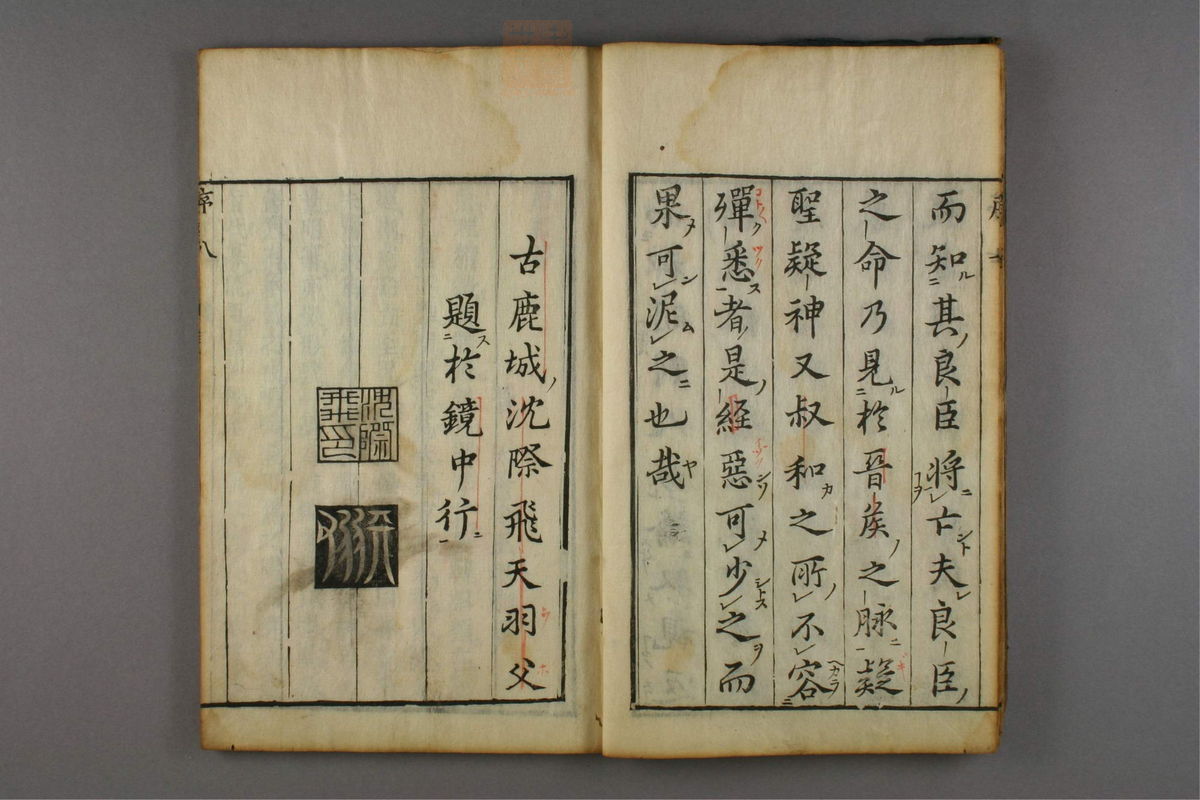 而知其良臣將亡夫良臣
之命乃見於晉矦之脉疑
聖疑神又叔和之所不容
彈悉者是經惡可少之而
果可泥之也哉
古鹿城沈際飛天羽父
題於鏡中行
沈際
飛印
序八